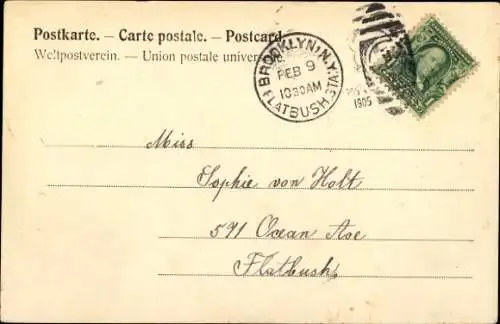 Postkarte. – Carte postale. – Postcard.
Weltpostverein. – Union postale univers
BROOKLYN, N.Y.
FEB 9
10 30 AM
FLATBUSH STA.
1905
Miss
Sophie von Holt
571 Ocean Ave
Flatbush